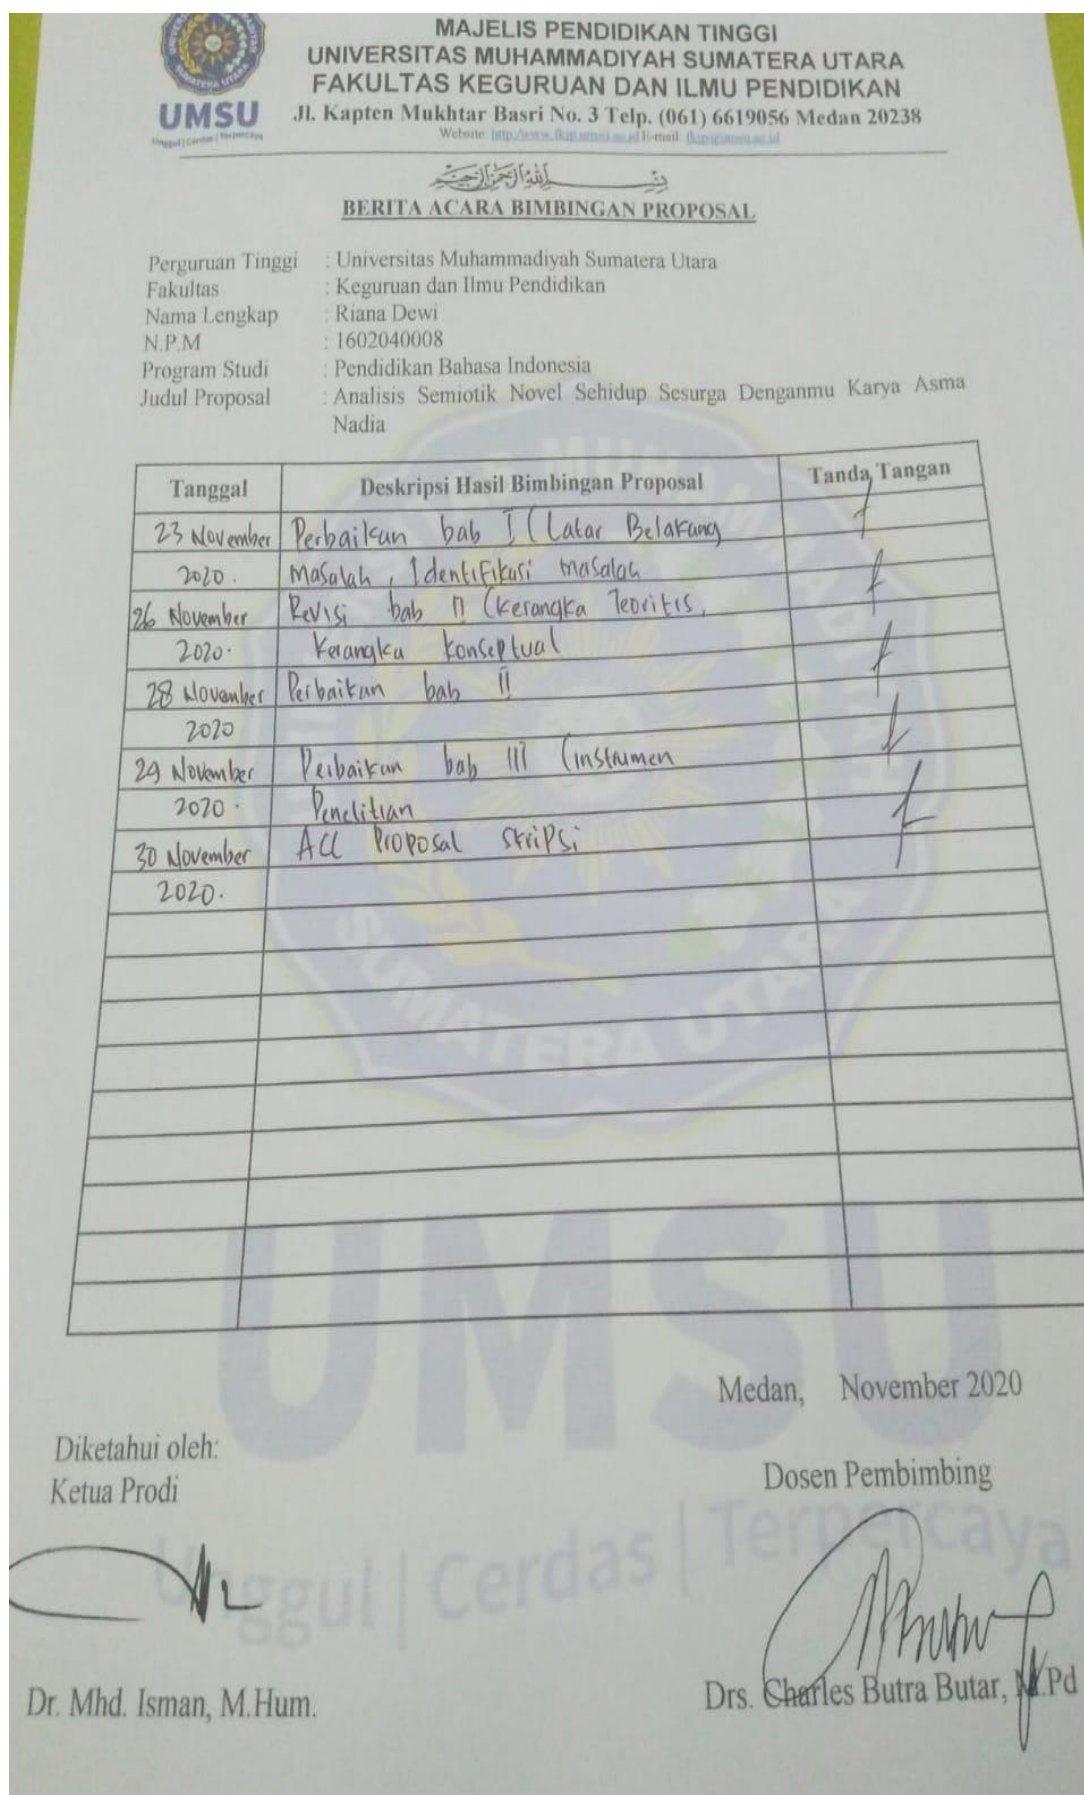 MAJELIS PENDIDIKAN TINGGI
UNIVERSITAS MUHAMMADIYAH SUMATERA UTARA
FAKULTAS KEGURUAN DAN ILMU PENDIDIKAN
UMSU
Jl. Kapten Mukhtar Basri No. 3 Telp. (061) 6619056 Medan 20238
Unggul | Cerdas | Terpercaya
Website: http://www.fkip.umsu.ac.id E-mail: fkip@umsu.ac.id
بِسْمِ اللهِ الرَّحْمٰنِ الرَّحِيْمِ
BERITA ACARA BIMBINGAN PROPOSAL
Perguruan Tinggi : Universitas Muhammadiyah Sumatera Utara
Fakultas : Keguruan dan Ilmu Pendidikan
Nama Lengkap : Riana Dewi
N.P.M : 1602040008
Program Studi : Pendidikan Bahasa Indonesia
Judul Proposal : Analisis Semiotik Novel Sehidup Sesurga Denganmu Karya Asma
Nadia
Tanggal Deskripsi Hasil Bimbingan Proposal Tanda Tangan
23 November Perbaikan bab I (Latar Belakang
2020. Masalah, Identifikasi masalah
26 November Revisi bab II (Kerangka Teoritis,
2020. Kerangka konseptual
28 November Perbaikan bab II
2020
29 November Perbaikan bab III (instrumen
2020. Penelitian
30 November ACC Proposal skripsi
2020.
SUMATERA UTARA
UMSU
Medan, November 2020
Diketahui oleh:
Ketua Prodi
Dosen Pembimbing
Unggul | Cerdas | Terpercaya
Dr. Mhd. Isman, M.Hum.
Drs. Charles Butra Butar, M.Pd